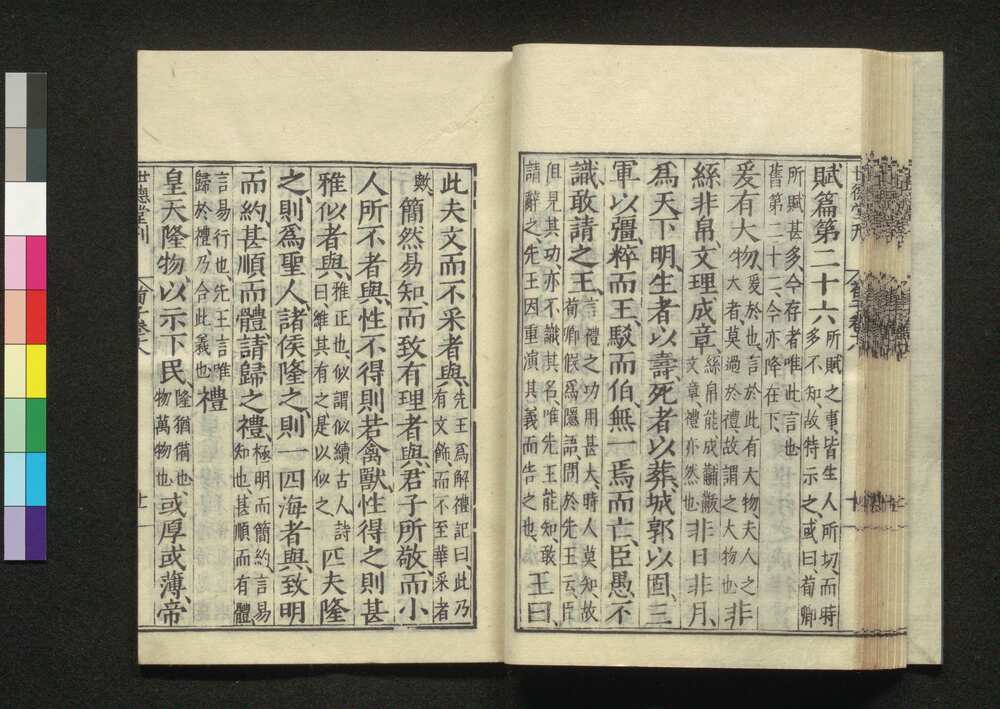 賦篇第二十六所賦之事皆生人所切、而時多不知、故特示之、或曰、荀卿
所賦甚多、今存者唯此言也
舊第二十二、今亦降在下、
爰有大物、爰於也、言於此有大物夫人之大者莫過於禮故謂之大物也非
絲非帛、文理成章、絲帛能成黼黻文章禮亦然也非日非月、
爲天下明、生者以壽、死者以葬、城郭以固、三
軍以彊、粹而王、駁而伯、無一焉而亡、臣愚、不
識敢請之王、言禮之功用甚大、時人莫知、故荀卿假爲隱語、問於先王云、臣
但見其功、亦不識其名、唯先王能知、敢
請辭之、先王因重演其義而告之也、王曰、
此夫文而不采者與、先王爲解禮記曰、此乃有文飾、而不至華采者
歟簡然易知、而致有理者與、君子所敬、而小
人所不者與、性不得則若禽獸性得之則甚
雅似者與、雅正也、似謂似續古人、詩曰維其有之是以似之匹夫隆
之、則爲聖人、諸侯隆之、則一四海者與、致明
而約、甚順而體、請歸之禮、極明而簡約、言易知也甚順而有體
言易行也、先王言唯
歸於禮乃合此義也禮
皇天隆物、以示下民、隆猶備也物萬物也、或厚或薄、帝
世德堂刊
十一